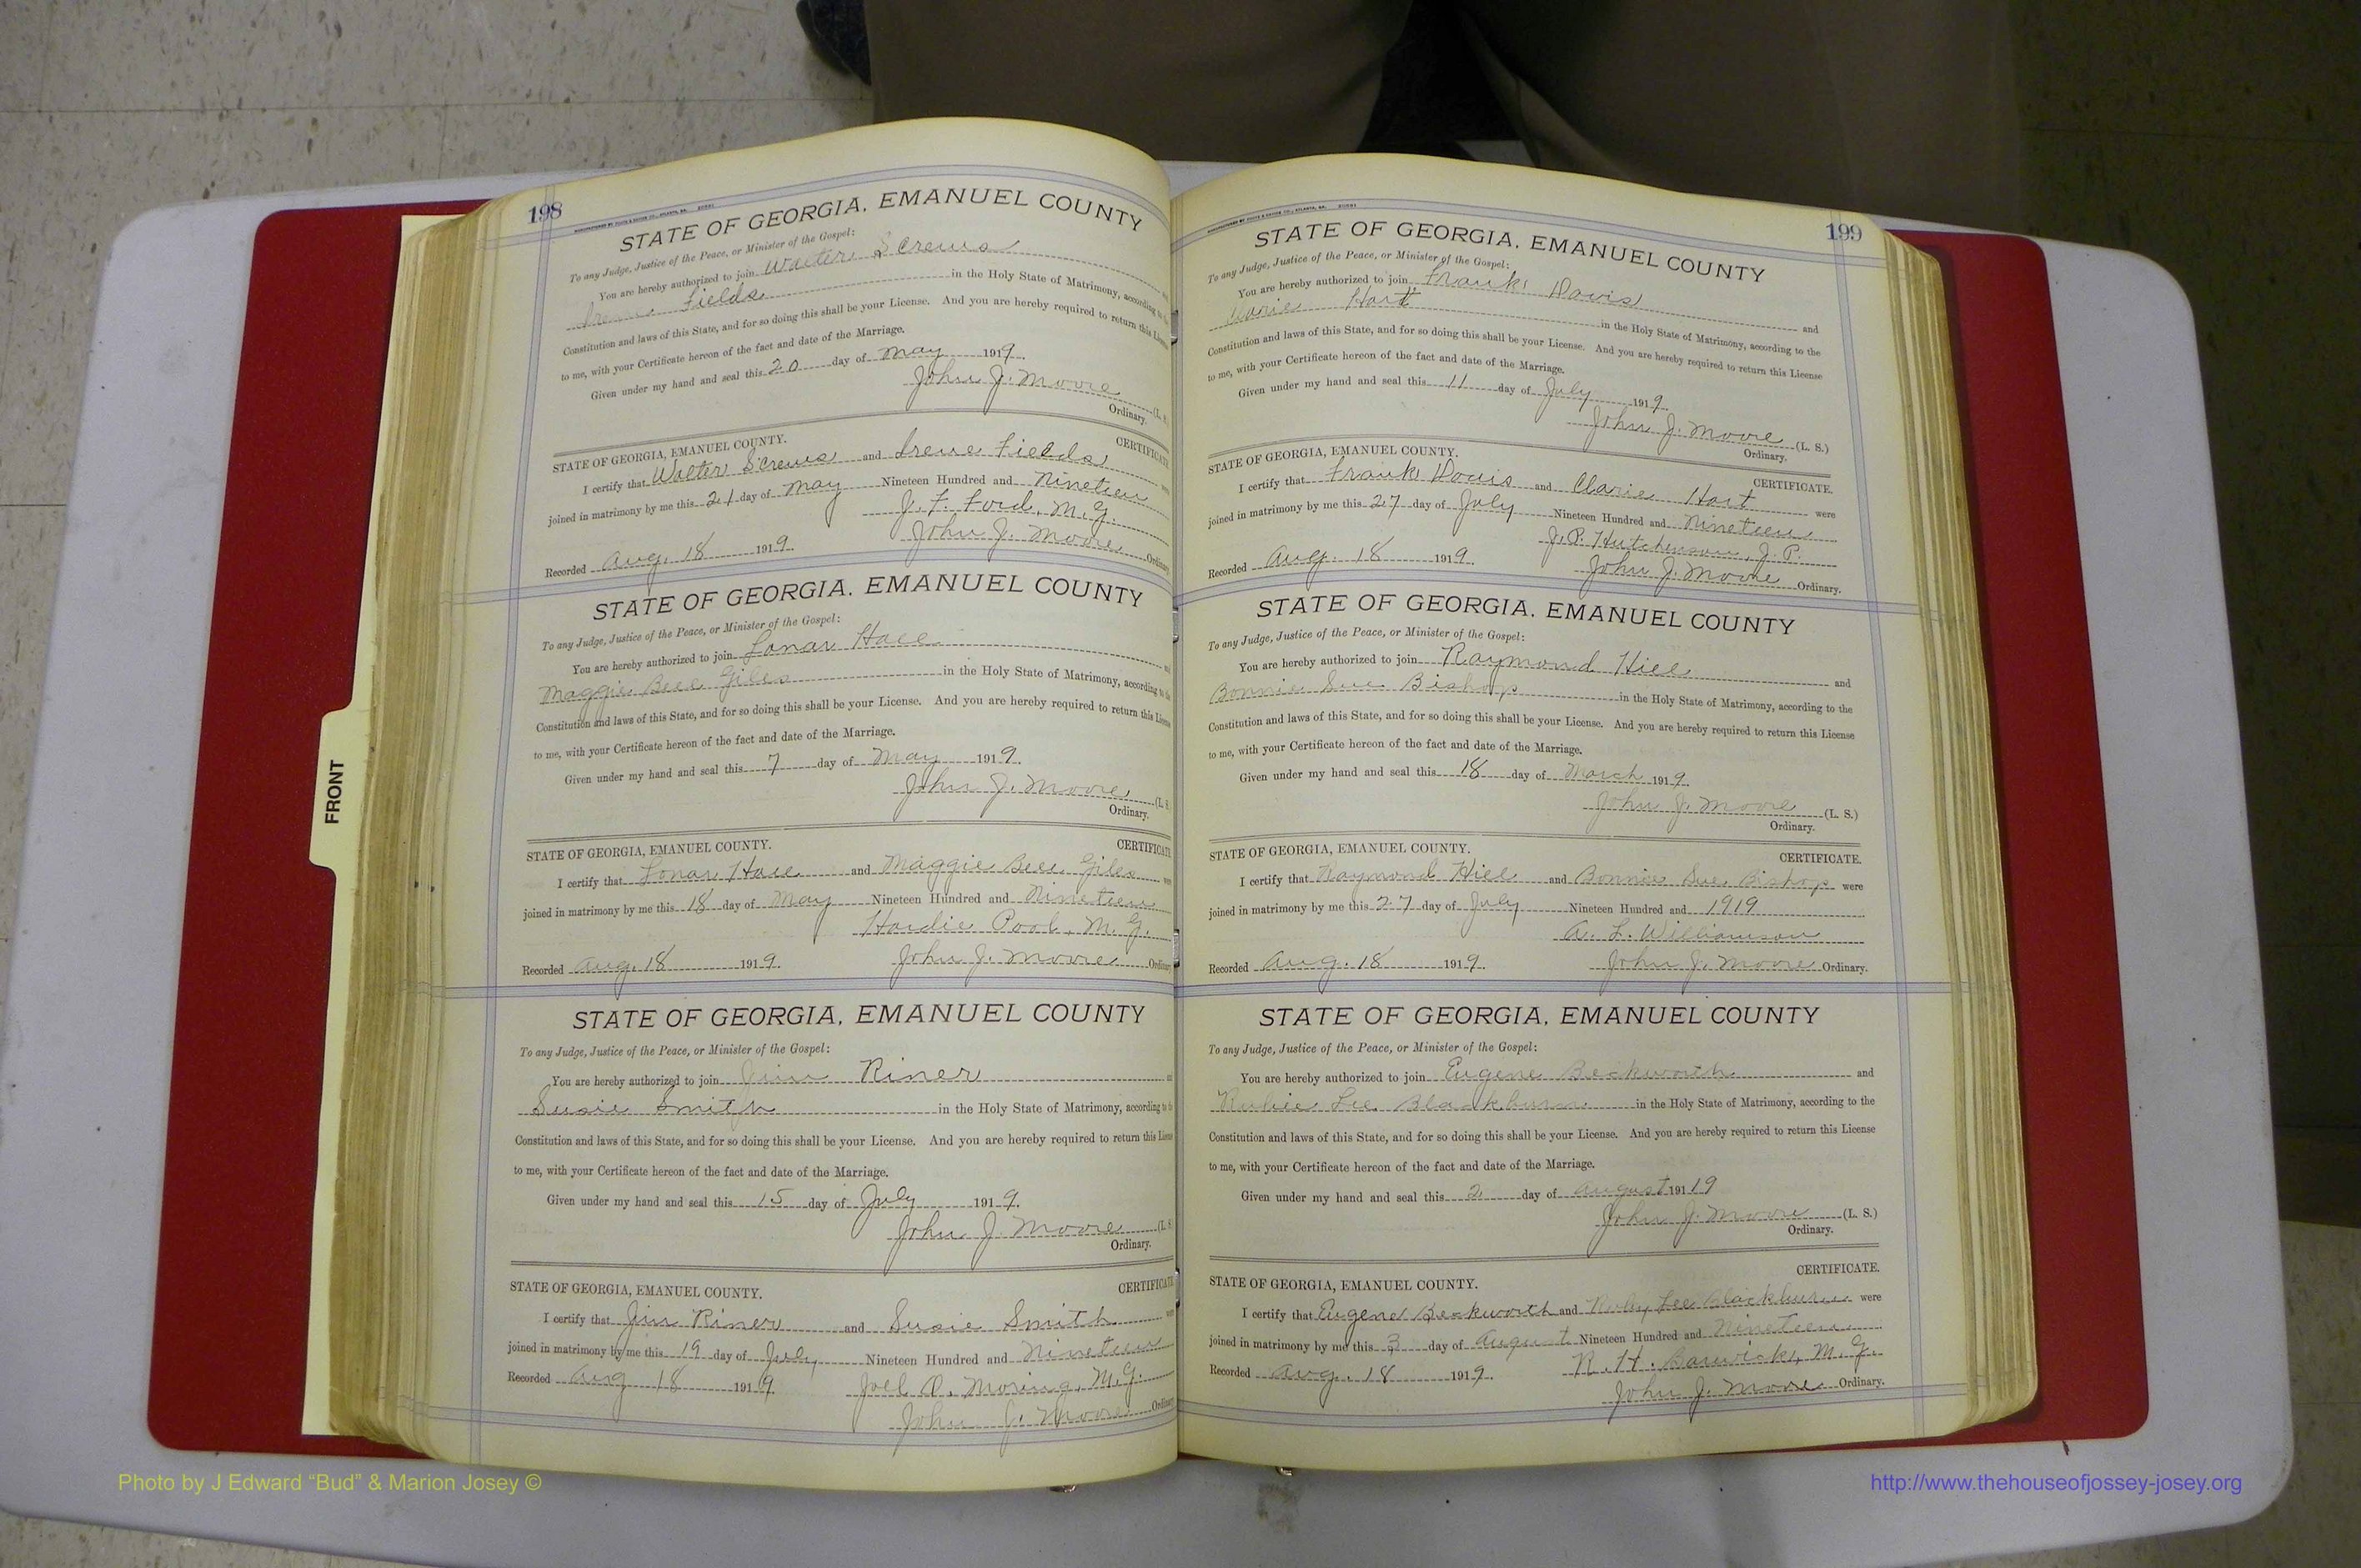 198
STATE OF GEORGIA, EMANUEL COUNTY
To any Judge, Justice of the Peace, or Minister of the Gospel:
You are hereby authorized to join Walter Screws
Irene Fields in the Holy State of Matrimony, according to the
Constitution and laws of this State, and for so doing this shall be your License. And you are hereby required to return this License
to me, with your Certificate hereon of the fact and date of the Marriage.
Given under my hand and seal this 20 day of May 1919.
John J. Moore (L. S.
Ordinary.
STATE OF GEORGIA, EMANUEL COUNTY. CERTIFICATE
I certify that Walter Screws and Irene Fields
joined in matrimony by me this 21 day of May Nineteen Hundred and Nineteen
J. F. Ford, M. G.
Recorded Aug. 18 1919. John J. Moore Ordinary
STATE OF GEORGIA, EMANUEL COUNTY
To any Judge, Justice of the Peace, or Minister of the Gospel:
You are hereby authorized to join Lonar Hall
Maggie Bell Giles in the Holy State of Matrimony, according to the
Constitution and laws of this State, and for so doing this shall be your License. And you are hereby required to return this License
to me, with your Certificate hereon of the fact and date of the Marriage.
Given under my hand and seal this 7 day of May 1919.
John J. Moore (L. S
Ordinary.
STATE OF GEORGIA, EMANUEL COUNTY. CERTIFICATE
I certify that Lonar Hall and Maggie Bell Giles
joined in matrimony by me this 18 day of May Nineteen Hundred and Nineteen
Hardie Pool, M. G.
Recorded Aug. 18 1919. John J. Moore Ordinary
STATE OF GEORGIA, EMANUEL COUNTY
To any Judge, Justice of the Peace, or Minister of the Gospel:
You are hereby authorized to join Jim Riner
Susie Smith in the Holy State of Matrimony, according to the
Constitution and laws of this State, and for so doing this shall be your License. And you are hereby required to return this License
to me, with your Certificate hereon of the fact and date of the Marriage.
Given under my hand and seal this 15 day of July 1919.
John J Moore (L. S
Ordinary.
STATE OF GEORGIA, EMANUEL COUNTY. CERTIFICATE
I certify that Jim Riner and Susie Smith
joined in matrimony by me this 19 day of July Nineteen Hundred and Nineteen
Recorded Aug 18 1919. Joel D. Moring, M. G.
John J. Moore Ordinary
199
STATE OF GEORGIA, EMANUEL COUNTY
To any Judge, Justice of the Peace, or Minister of the Gospel:
You are hereby authorized to join Frank Davis and
Clarie Hart in the Holy State of Matrimony, according to the
Constitution and laws of this State, and for so doing this shall be your License. And you are hereby required to return this License
to me, with your Certificate hereon of the fact and date of the Marriage.
Given under my hand and seal this 11 day of July 1919.
John J. Moore (L. S.)
Ordinary.
STATE OF GEORGIA, EMANUEL COUNTY. CERTIFICATE.
I certify that Frank Davis and Clarie Hart were
joined in matrimony by me this 27 day of July Nineteen Hundred and Nineteen
J. P. Hutchenson, J. P.
Recorded Aug. 18 1919. John J. Moore Ordinary.
STATE OF GEORGIA, EMANUEL COUNTY
To any Judge, Justice of the Peace, or Minister of the Gospel:
You are hereby authorized to join Raymond Hill and
Bonnie Sue Bishop in the Holy State of Matrimony, according to the
Constitution and laws of this State, and for so doing this shall be your License. And you are hereby required to return this License
to me, with your Certificate hereon of the fact and date of the Marriage.
Given under my hand and seal this 18 day of March 1919.
John J. Moore (L. S.)
Ordinary.
STATE OF GEORGIA, EMANUEL COUNTY. CERTIFICATE.
I certify that Raymond Hill and Bonnie Sue Bishop were
joined in matrimony by me this 27 day of July Nineteen Hundred and 1919
A. L. Williamson
Recorded Aug. 18 1919. John J. Moore Ordinary.
STATE OF GEORGIA, EMANUEL COUNTY
To any Judge, Justice of the Peace, or Minister of the Gospel:
You are hereby authorized to join Eugene Beckworth and
Rubie Lee Blackburn in the Holy State of Matrimony, according to the
Constitution and laws of this State, and for so doing this shall be your License. And you are hereby required to return this License
to me, with your Certificate hereon of the fact and date of the Marriage.
Given under my hand and seal this 2 day of August 19119
John J. Moore (L. S.)
Ordinary.
STATE OF GEORGIA, EMANUEL COUNTY. CERTIFICATE.
I certify that Eugene Beckworth and Ruby Lee Blackburn were
joined in matrimony by me this 3 day of August Nineteen Hundred and Nineteen
Recorded Aug. 18 1919. R. H. Barwick, M. G.
John J. Moore Ordinary.
FRONT
Photo by J Edward “Bud” & Marion Josey ©
http://www.thehouseofjossey-josey.org